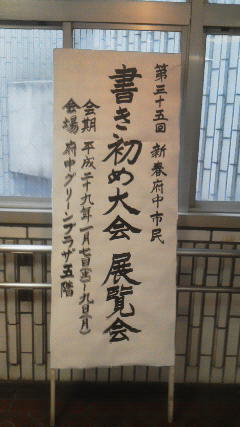 第三十五回 新春府中市民
書き初め大会 展覧会
会期 平成二十九年一月七日(土)~九日(月)
会場 府中グリーンプラザ五階